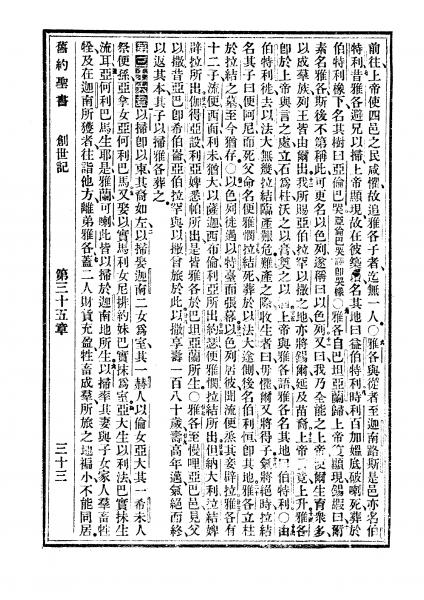 前往上帝使四邑之民咸懼故追雅各子者迄無一人○雅各與從者至迦南路斯是邑亦名伯
特利昔雅各避兄以掃上帝顯現故在彼築壇名其地曰益伯特利時利百加媼底破喇死葬於
伯特利橡下名其樹曰亞倫巴哭亞倫巴哭譯即哭橡○雅各自巴坦亞蘭歸上帝復顯現錫嘏曰爾
素名雅各斯後不第稱此可更名以色列遂稱曰以色列又曰我乃全能之上帝使爾生育衆多
以成羣族列王皆由爾出我所賜亞伯拉罕以撒之地亦將錫爾延及苗裔上帝言竟上升雅各
即於上帝與言之處立石爲柱沃之以酒奠之以膏上帝與雅各語雅各名其地曰伯特利○由
伯特利徙去以法大無幾拉結臨產艱危難產之際收生者曰毋懼爾又將得子氣將絕時拉結
名其子曰便阿尼而死父命名便雅憫拉結死葬於以法大途側後名伯利恒即其地雅各立柱
於拉結之墓至今猶存○以色列徙過以特臺而張幕以色列居彼間流便烝其妾辟拉雅各有
十二子流便西面利未猶大以薩迦西布倫利亞所出約瑟便雅憫拉結所出但納大利拉結婢
辟拉所出伽得亞設利亞婢悉帕所出是皆雅各於巴坦亞蘭所生○雅各至慢哩亞巴邑見父
以撒昔亞巴即希伯崙亞伯拉罕與以撒曾旅於此以撒享壽一百八十歲壽高年邁氣絕而終
以返其本其子以掃雅各葬之
第三十六章以掃即以東其裔如左以掃娶迦南二女爲室其一赫人以倫女亞大其一希未人
祭便孫亞拿女亞何利巴馬又娶以實馬利女尼排約妹巴實抹爲室亞大生以利法巴實抹生
流耳亞何利巴馬生耶是雅蘭可喇此皆以掃於迦南地所生以掃率其妻與子女家人羣畜牲
牷及在迦南所獲者往詣他方離弟雅各蓋二人財貲充盈牲畜成羣所旅之地褊小不能同居
舊約聖書 創世記 第三十五章 三十三